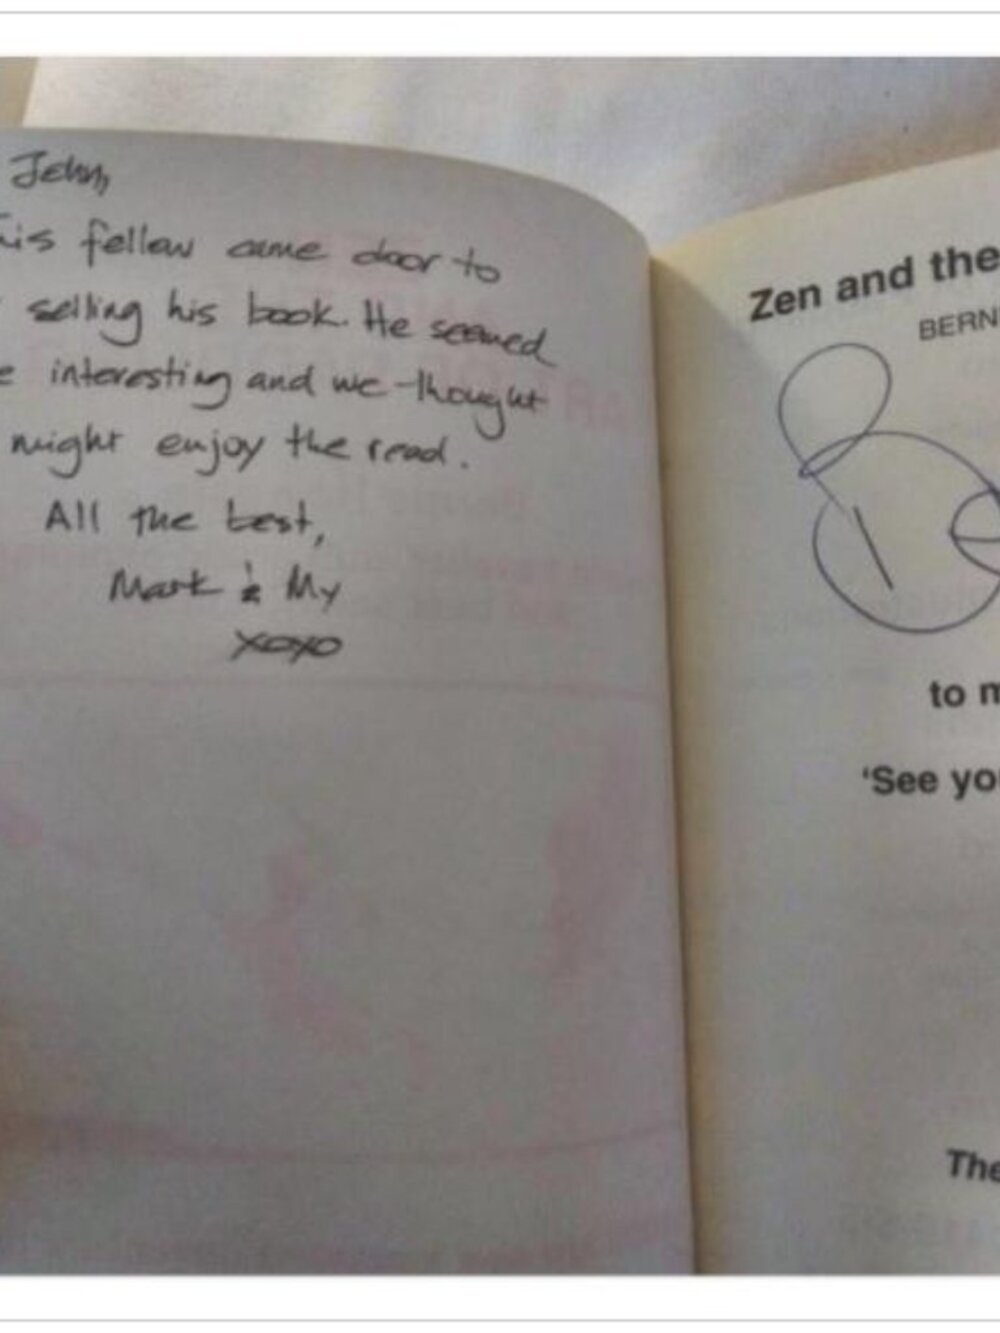 John,
his fellow came door to
selling his book. He seemed
e interesting and we thought
might enjoy the read.
All the best,
Mark & My
xoxo
Zen and the
BERN
to m
'See you
The